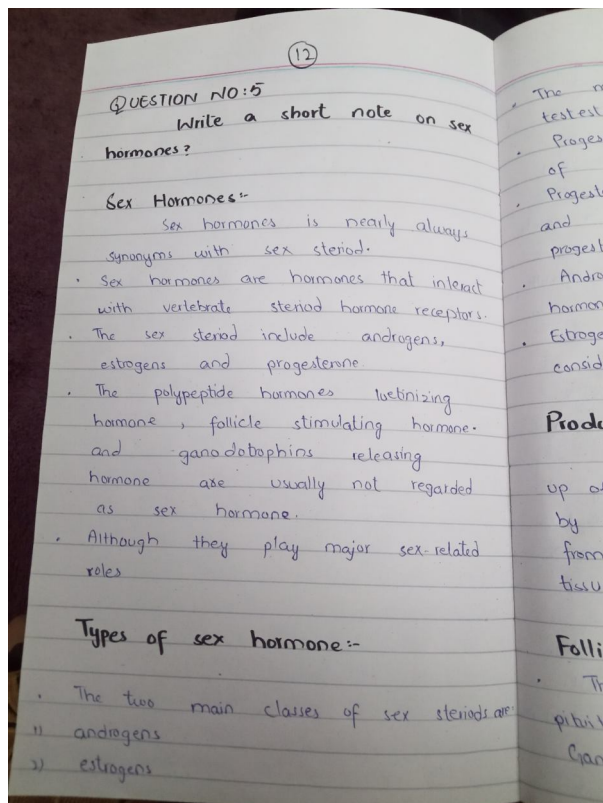 12
QUESTION NO:5
Write a short note on sex
hormones?
Sex Hormones:-
Sex hormones is nearly always
synonyms with sex steriod.
• Sex hormones are hormones that interact
with vertebrate steriod hormone receptors.
• The sex steriod include androgens,
estrogens and progesterone
• The polypeptide hormones luetinizing
hormone, follicle stimulating hormone.
and ganodotophins releasing
hormone are usually not regarded
as sex hormone.
• Although they play major sex-related
roles
Types of sex hormone:-
• The two main classes of sex steriods are
1) androgens
2) estrogens
• The
testest
• Proges
of
• Progest
and
progest
• Andro
hormon
• Estroge
consid
Produ
up of
by
from
tissu
Folli
• Th
pituit
Gan